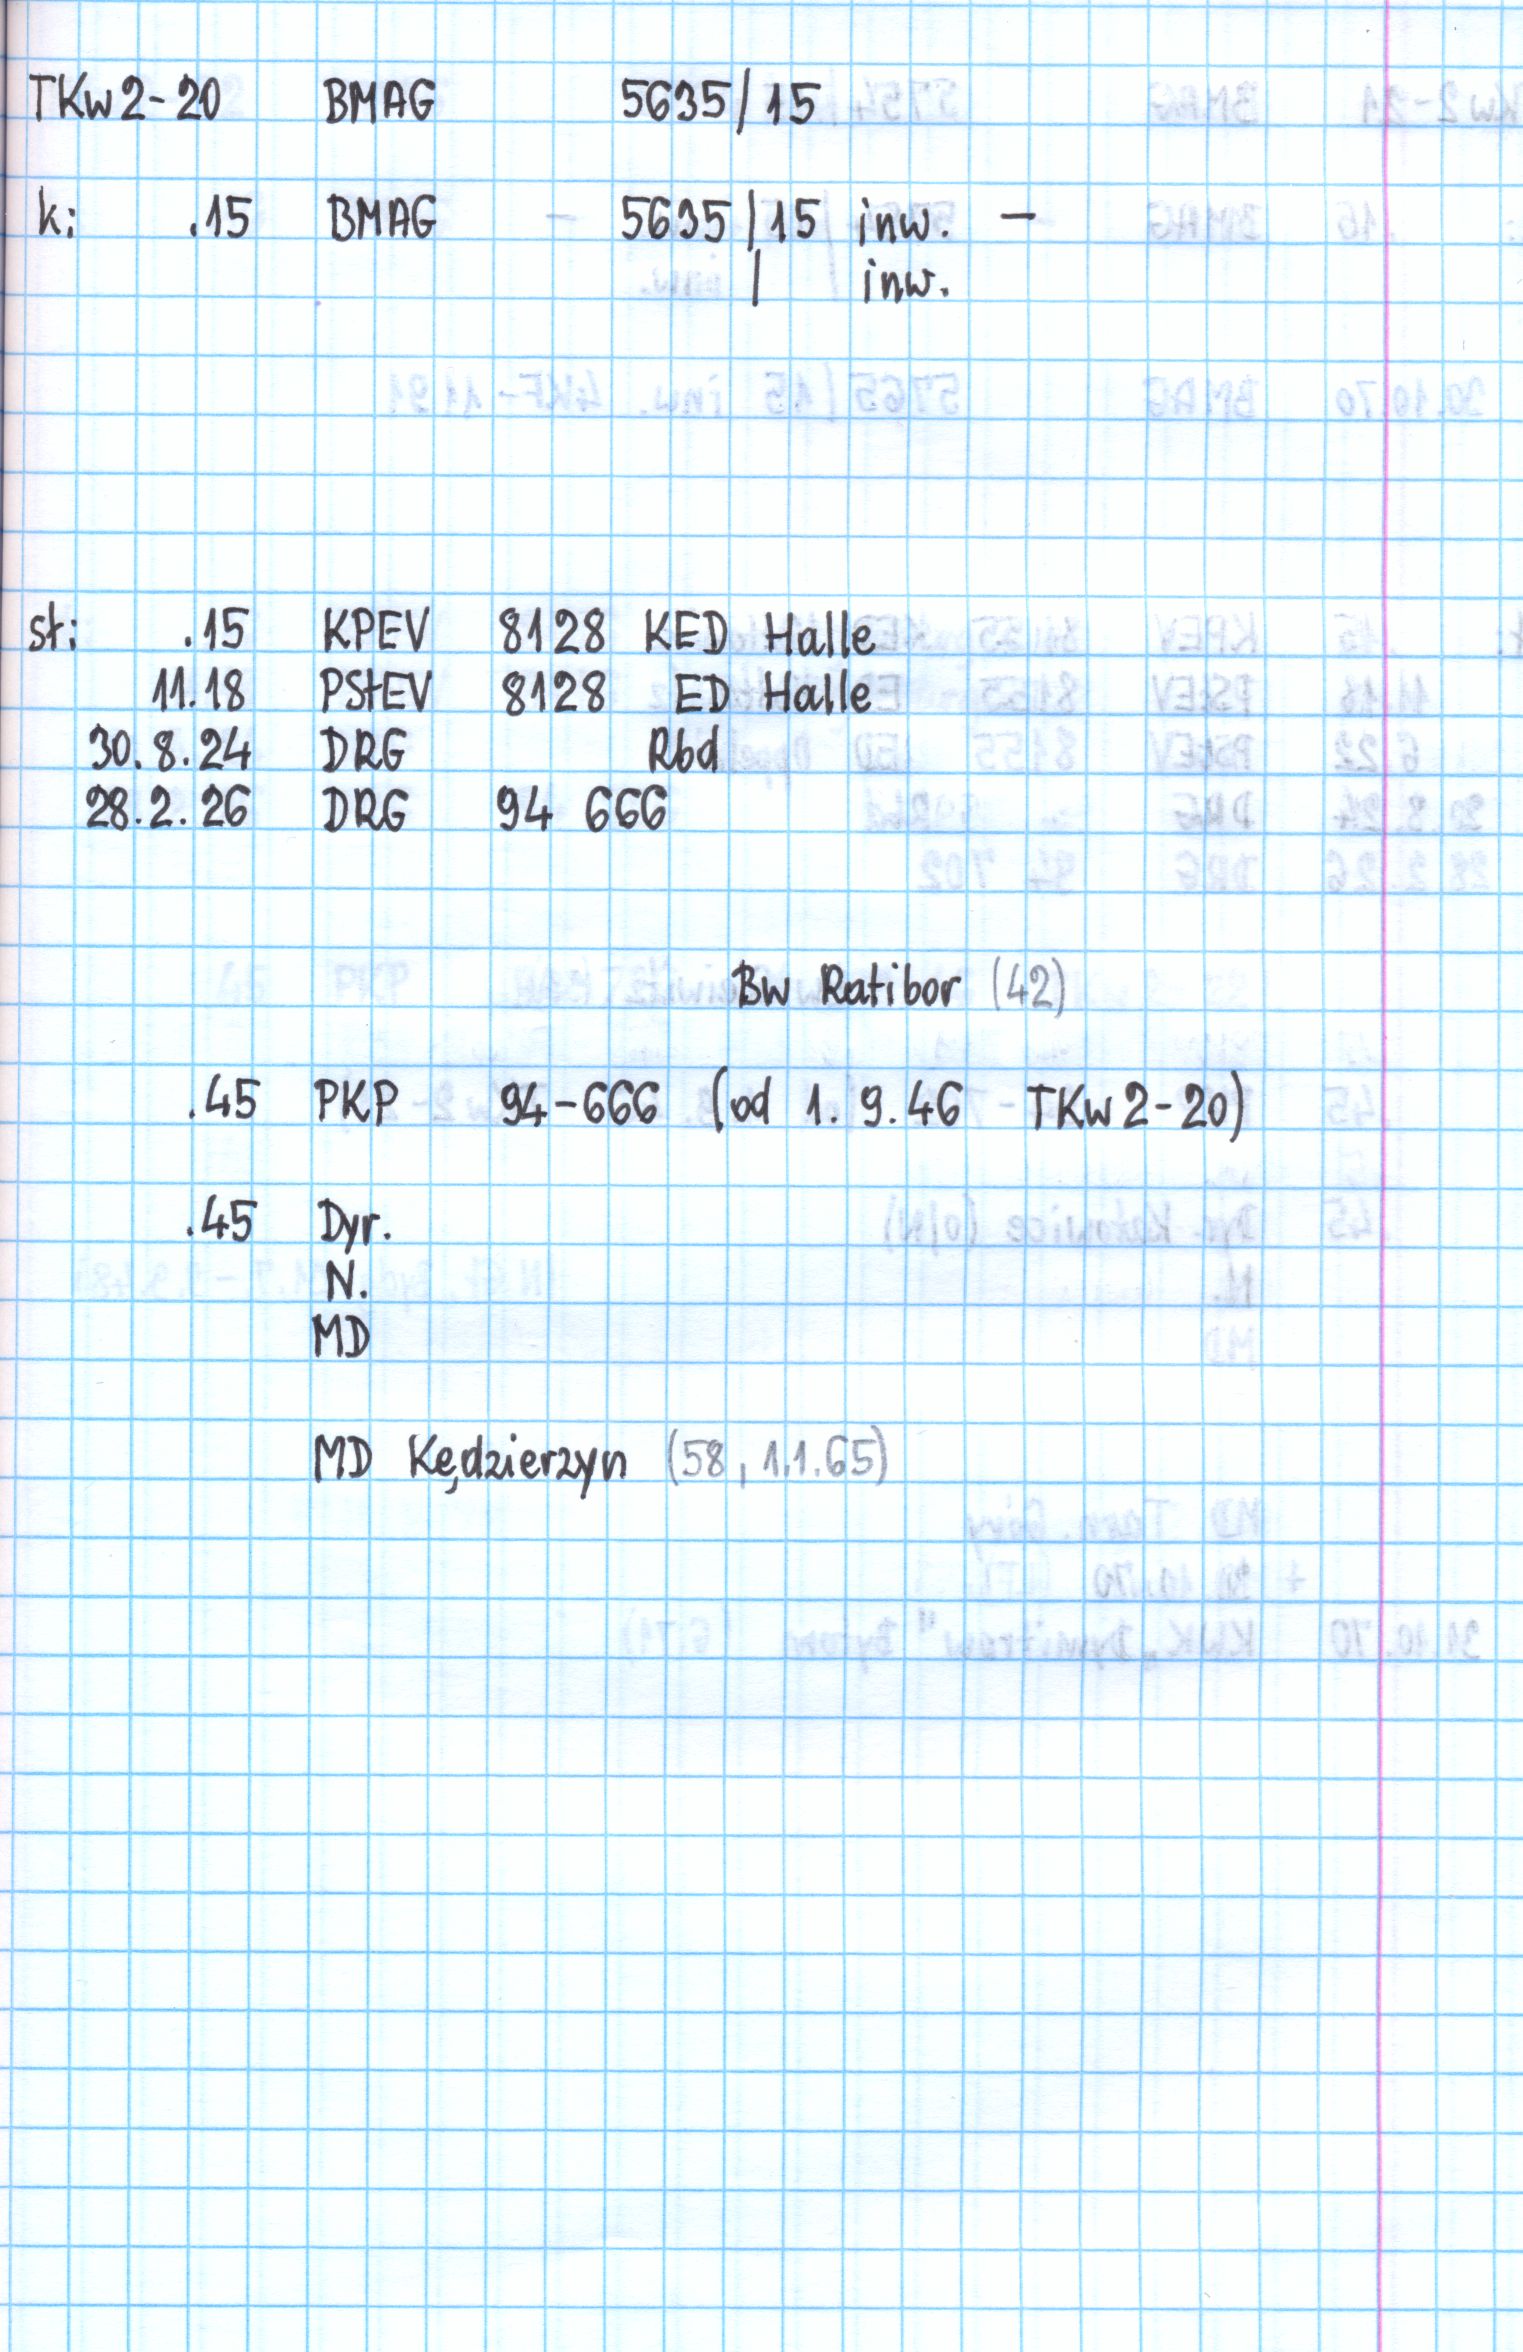 TKw2-20 BMAG 5635/15
k: .15 BMAG 5635/15 inw. -
/ inw.
st: .15 KPEV 8128 KED Halle
11.18 PStEV 8128 ED Halle
30.8.24 DRG Rbd
28.2.26 DRG 94 666
Bw Ratibor (42)
.45 PKP 94-666 (od 1.9.46 TKw2-20)
.45 Dyr.
N.
MD
MD Kędzierzyn (58, 1.1.65)